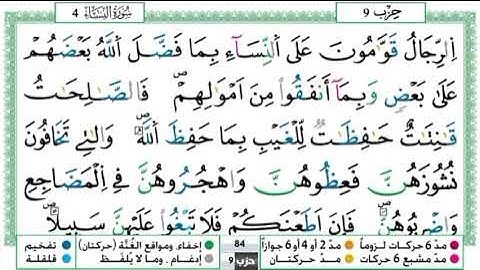 سُورَةُ النِّسَاءِ 4
حِزْب 9
اَ۬لرِّجَالُ قَوَّٰمُونَ عَلَى اَ۬لنِّسَآءِ بِمَا فَضَّلَ اَ۬للَّهُ بَعْضَهُمْ
عَلَىٰ بَعْضٖ وَبِمَآ أَنفَقُواْ مِنَ اَمْوَٰلِهِمْۖ فَالصَّٰلِحَٰتُ
قَٰنِتَٰتٌ حَٰفِظَٰتٞ لِّلْغَيْبِ بِمَا حَفِظَ اَ۬للَّهُۖ وَالَّٰتِے تَخَافُونَ
نُشُوزَهُنَّ فَعِظُوهُنَّ وَاهْجُرُوهُنَّ فِے اِ۬لْمَضَاجِعِ
وَاضْرِبُوهُنَّۖ فَإِنَ اَطَعْنَكُمْ فَلَا تَبْغُواْ عَلَيْهِنَّ سَبِيلًاۖ
مدّ 6 حركات لزوماً مدّ 2 أو 4 أو 6 جوازاً 84 إخفاء، ومواقع الغُنَّة (حركتان) تفخيم
مدّ مشبع 6 حركات مدّ حركتان حزب 9 إدغام، وما لا يُلفَظ قلقلة